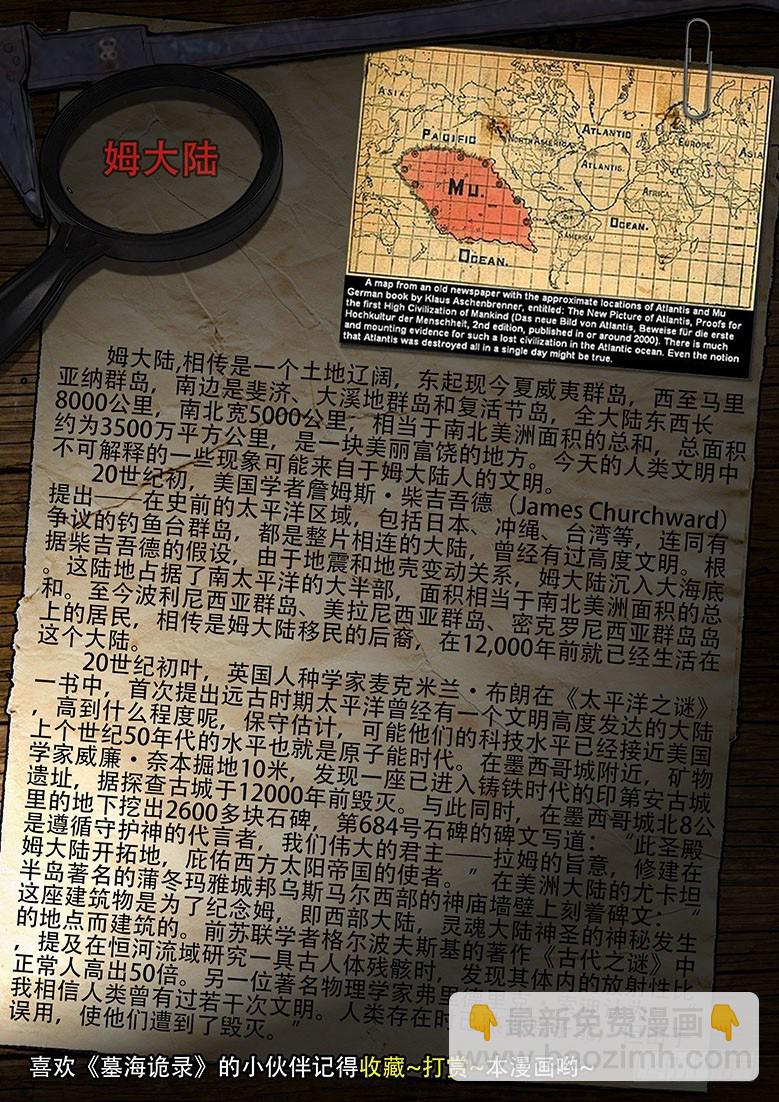 姆大陆
ASIA
PACIFIC
NORTH AMERICA
ATLANTIC
EUROPE
ASIA
ATLANTIS.
AFRICA.
MU.
S.AMERICA
OCEAN.
OCEAN.
A map from an old newspaper with the approximate locations of Atlantis and Mu
German book by Klaus Aschenbrenner, entitled: The New Picture of Atlantis, Proofs for
the first High Civilization of Mankind (Das neue Bild von Atlantis, Beweise für die erste
Hochkultur der Menschheit, 2nd edition, published in or around 2000). There is much
and mounting evidence for such a lost civilization in the Atlantic ocean. Even the notion
that Atlantis was destroyed all in a single day might be true.
姆大陆,相传是一个土地辽阔，东起现今夏威夷群岛，西至马里
亚纳群岛，南边是斐济、大溪地群岛和复活节岛，全大陆东西长
8000公里，南北宽5000公里，相当于南北美洲面积的总和，总面积
约为3500万平方公里，是一块美丽富饶的地方。今天的人类文明中
不可解释的一些现象可能来自于姆大陆人的文明。
20世纪初，美国学者詹姆斯·柴吉吾德（James Churchward）
提出——在史前的太平洋区域，包括日本、冲绳、台湾等，连同有
争议的钓鱼台群岛，都是整片相连的大陆，曾经有过高度文明。根
据柴吉吾德的假设，由于地震和地壳变动关系，姆大陆沉入大海底
。这陆地占据了南太平洋的大半部，面积相当于南北美洲面积的总
和。至今波利尼西亚群岛、美拉尼西亚群岛、密克罗尼西亚群岛岛
上的居民，相传是姆大陆移民的后裔，在12,000年前就已经生活在
这个大陆。
20世纪初叶，英国人种学家麦克米兰·布朗在《太平洋之谜》
一书中，首次提出远古时期太平洋曾经有一个文明高度发达的大陆
，高到什么程度呢，保守估计，可能他们的科技水平已经接近美国
上个世纪50年代的水平也就是原子能时代。在墨西哥城附近，矿物
学家威廉·奈本掘地10米，发现一座已进入铸铁时代的印第安古城
遗址，据探查古城于12000年前毁灭。与此同时，在墨西哥城北8公
里的地下挖出2600多块石碑，第684号石碑的碑文写道：“此圣殿
是遵循守护神的代言者，我们伟大的君主——拉姆的旨意，修建在
姆大陆开拓地，庇佑西方太阳帝国的使者。”在美洲大陆的尤卡坦
半岛著名的蒲冬玛雅城邦乌斯马尔西部的神庙墙壁上刻着碑文：“
这座建筑物是为了纪念姆，即西部大陆，灵魂大陆神圣的神秘发生
的地点而建筑的。前苏联学者格尔波夫斯基的著作《古代之谜》中
，提及在恒河流域研究一具古人体残骸时，发现其体内的放射性比
正常人高出50倍。另一位著名物理学家弗里
我相信人类曾有过若干次文明。人类存在时
误用，使他们遭到了毁灭。”
👇最新免费漫画👇
www.baozimh.com
喜欢《墓海诡录》的小伙伴记得收藏~打赏~本漫画哟~